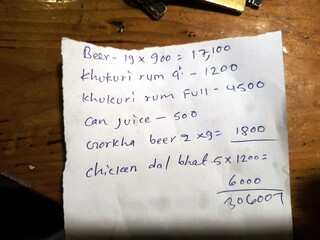 Beer - 19 x 900 = 17,100
Khukuri rum - 1200
khukuri rum Full - 4500
can Juice - 500
Gorkha beer 2 x 9 = 1800
chicken dal bhat 5 x 1200 =
6000